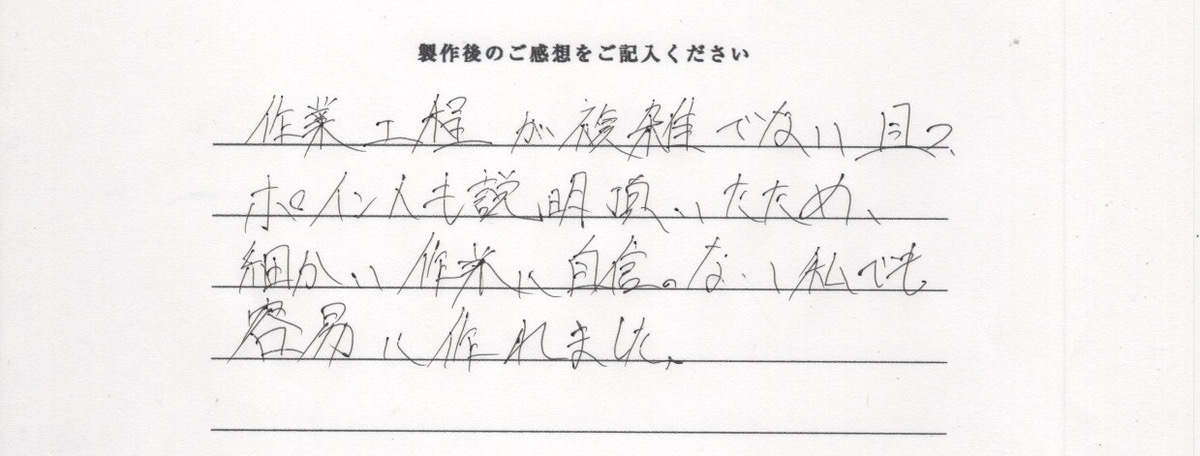 製作後のご感想をご記入ください
作業工程が複雑でない且つ、
ポイントも説明頂いたため、
細かい作業に自信のない私でも
容易に作れました。